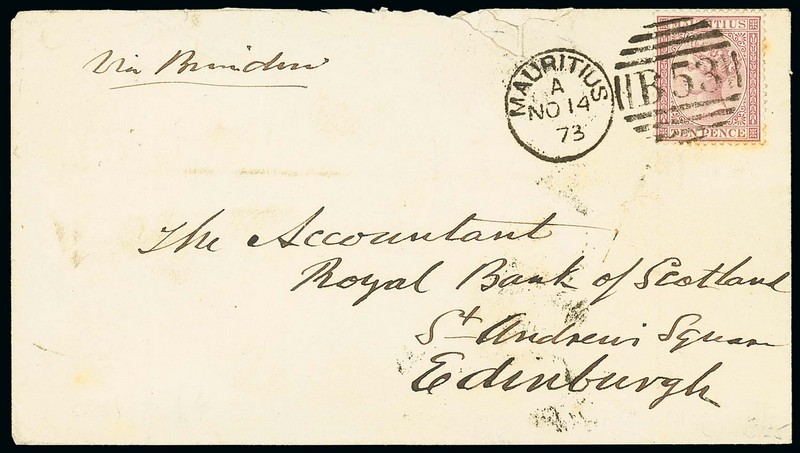 Via Brindisi
MAURITIUS
A
NO 14
73
B53
MAURITIUS
TEN PENCE
The Accountant
Royal Bank of Scotland
St Andrew's Square
Edinburgh